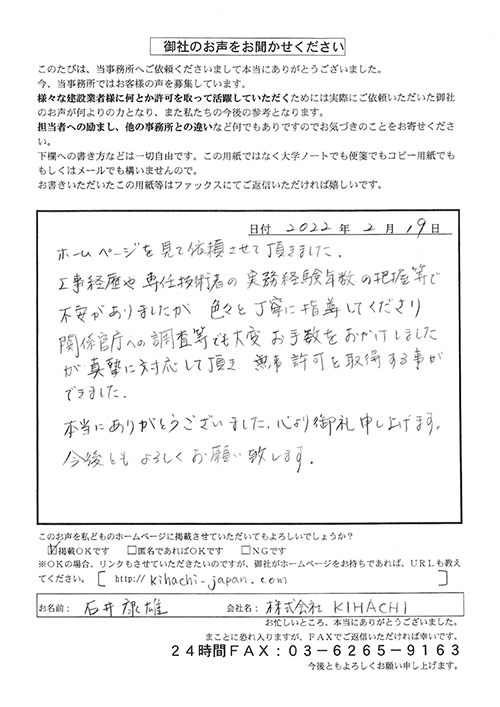 御社のお声をお聞かせください
このたびは、当事務所へご依頼くださいまして本当にありがとうございました。
今、当事務所ではお客様の声を募集しています。
様々な建設業者様に何とか許可を取って活躍していただくためには実際にご依頼いただいた御社
のお声が何よりの力となり、また私たちの今後の参考となります。
担当者への励まし、他の事務所との違いなど何でもありですのでお気づきのことをお寄せくださ
い。
下欄への書き方などは一切自由です。この用紙ではなく大学ノートでも便箋でもコピー用紙でも
もしくはメールでも構いませんので。
お書きいただいたこの用紙等はファックスにてご返信いただければ嬉しいです。
日付 2022年 2月 19日
ホームページを見て依頼させて頂きました。
工事経歴や専任技術者の実務経験年数の把握等で
不安がありましたが 色々と丁寧に指導してくださり
関係官庁への調査等でも大変 お手数をおかけしました
が真摯に対応して頂き 無事 許可を取得する事が
できました。
本当にありがとうございました、心より御礼申し上げます。
今後とも よろしくお願い致します。
このお声を私どものホームページに掲載させていただいてもよろしいでしょうか?
☑掲載OKです □匿名であればOKです □NGです
※OKの場合、リンクもさせていただきたいのですが、御社がホームページをお持ちであれば、URLも教え
てください。[ http://kihachi-japan.com ]
お名前: 石井 康雄 会社名: 株式会社 KIHACHI
お忙しいところ、本当にありがとうございました。
まことに恐れ入りますが、FAXでご返信いただければ幸いです。
24時間FAX:03-6265-9163
今後ともよろしくお願い申し上げます。